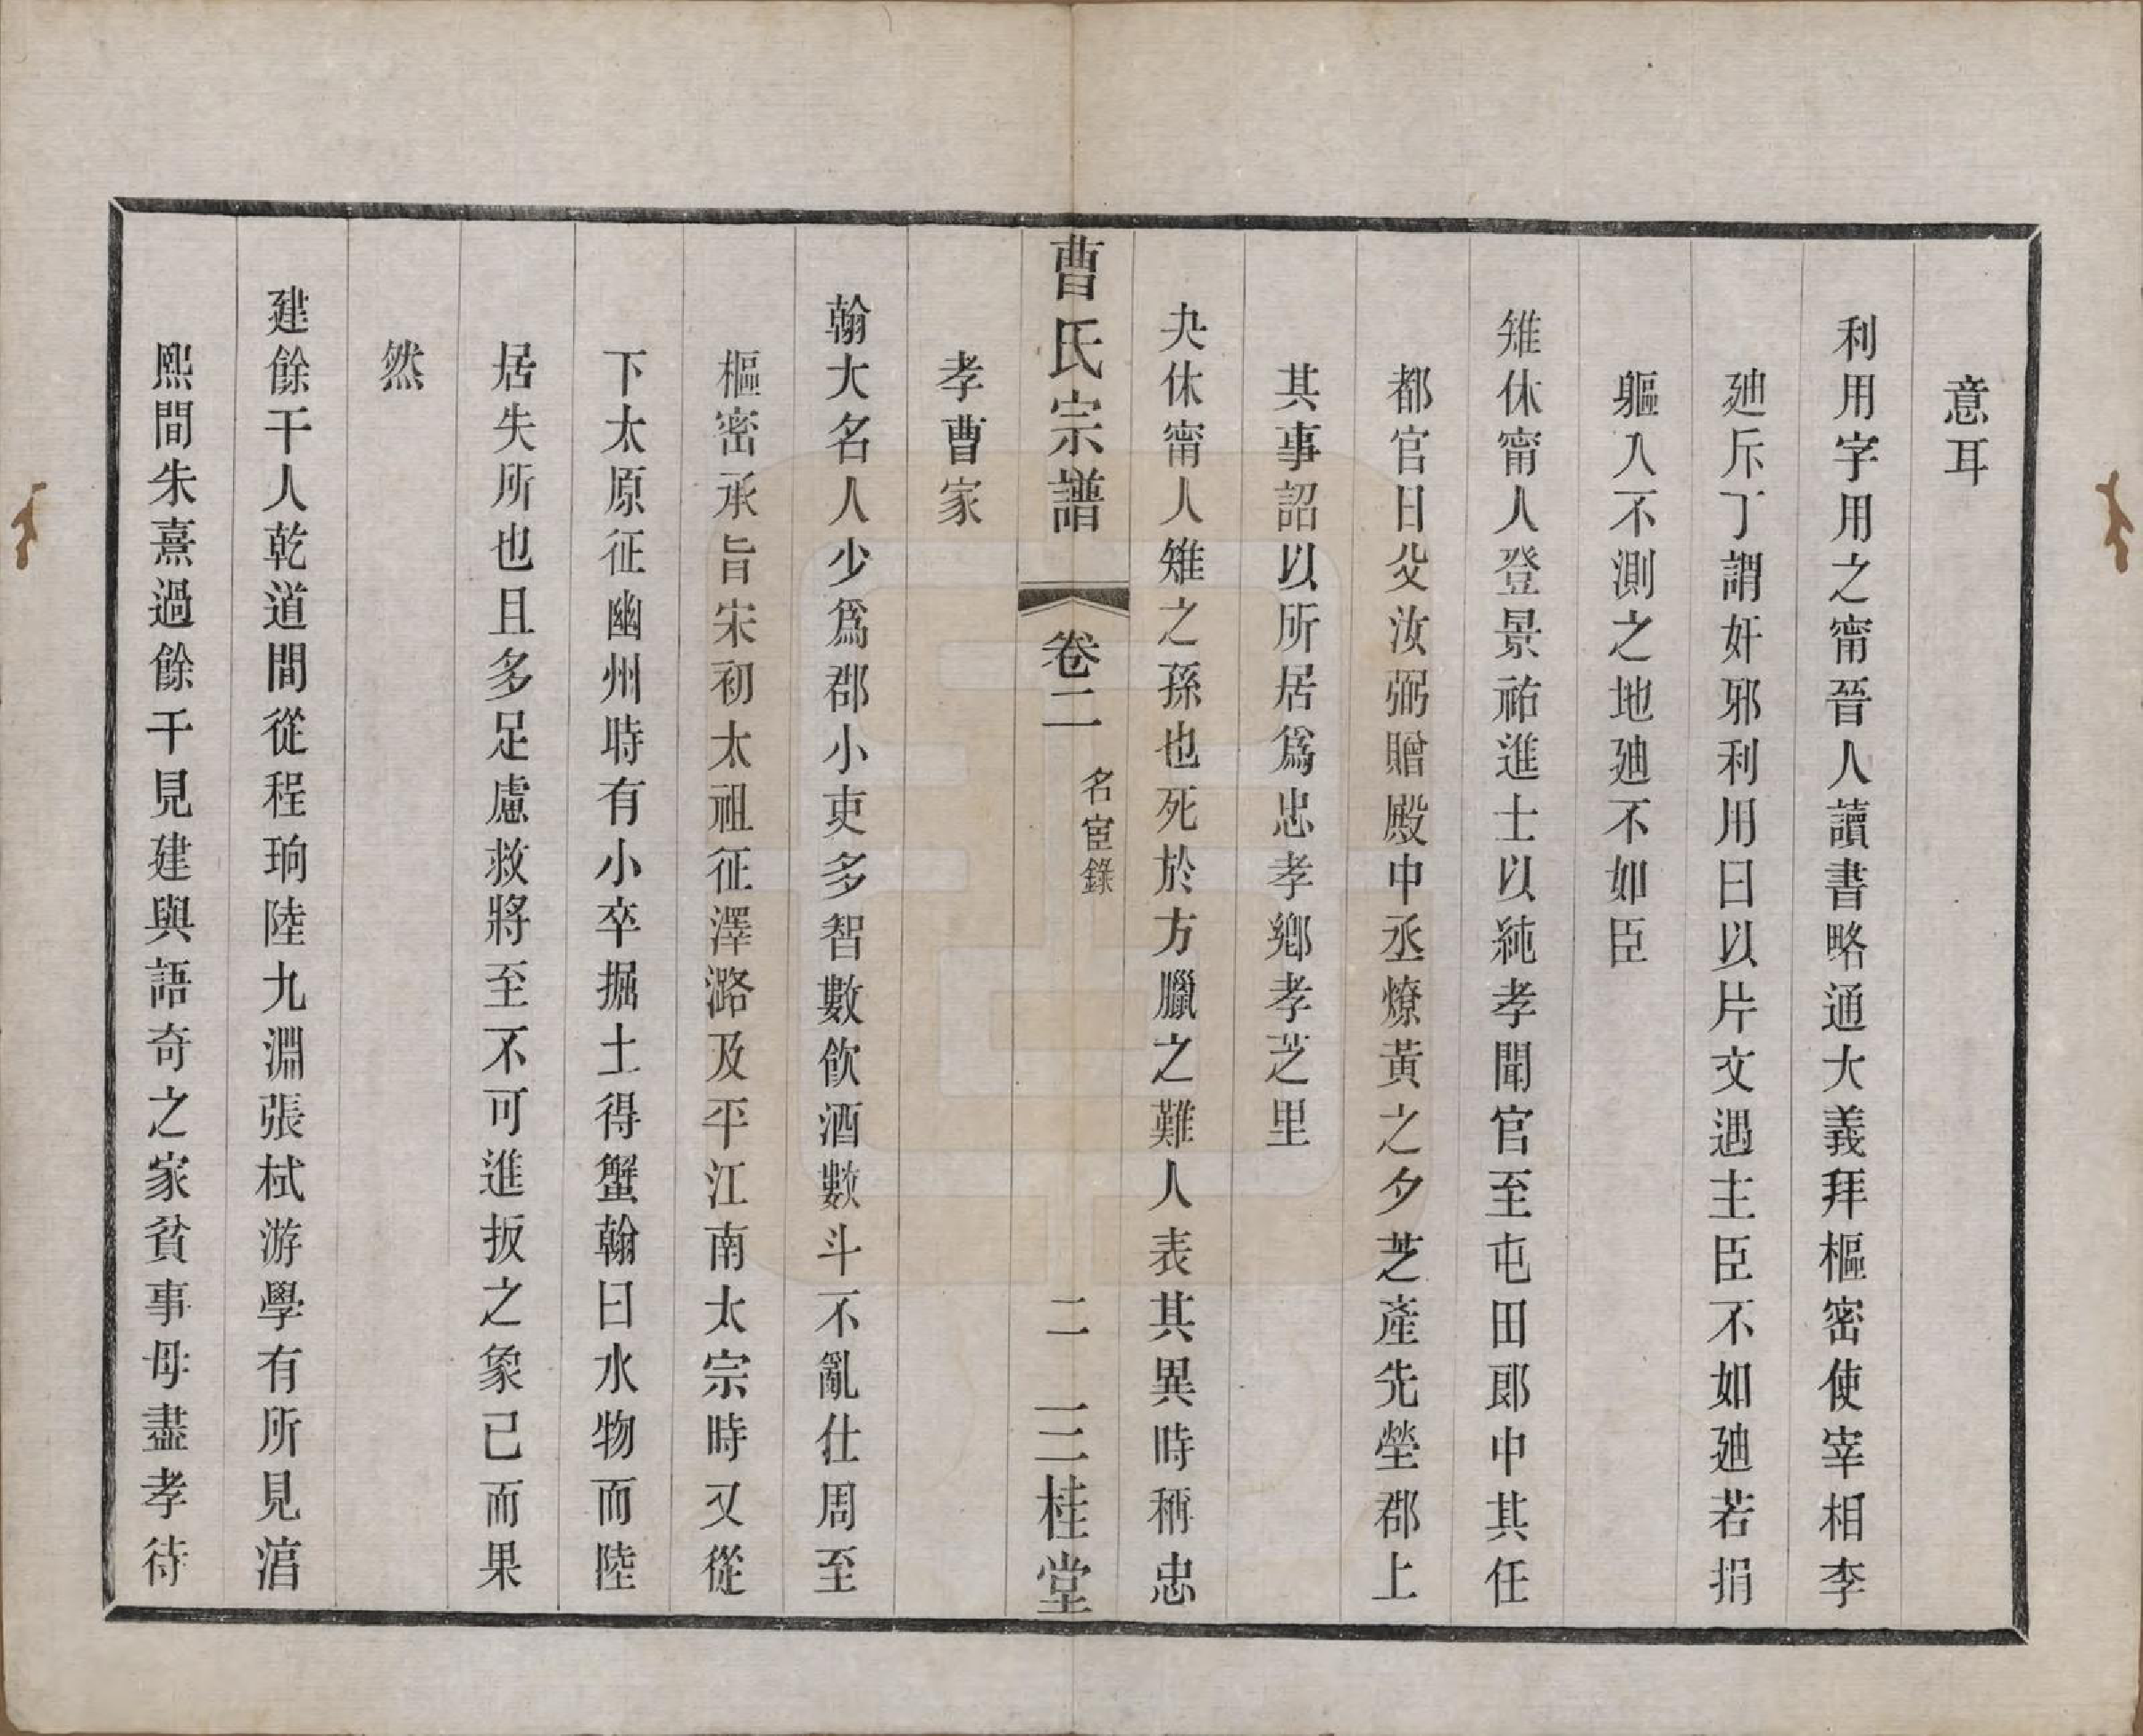 意耳
利用字用之甯晉人讀書略通大義拜樞密使宰相李
廸斥丁謂奸邪利用曰以片文遇主臣不如廸若捐
軀入不測之地廸不如臣
雉休甯人登景祐進士以純孝聞官至屯田郎中其任
都官日父汝弼贈殿中丞燎黃之夕芝產先塋郡上
其事詔以所居爲忠孝鄉孝芝里
夬休甯人雉之孫也死於方臘之難人表其異時稱忠
曹氏宗譜 卷二 名宦錄 二 三桂堂
孝曹家
翰大名人少爲郡小吏多智數飮酒數斗不亂仕周至
樞密承旨宋初太祖征澤潞及平江南太宗時又從
下太原征幽州時有小卒掘土得蟹翰曰水物而陸
居失所也且多足慮救將至不可進扳之象已而果
然
建餘干人乾道間從程珦陸九淵張栻游學有所見湻
熙間朱熹過餘干見建與語奇之家貧事母盡孝待